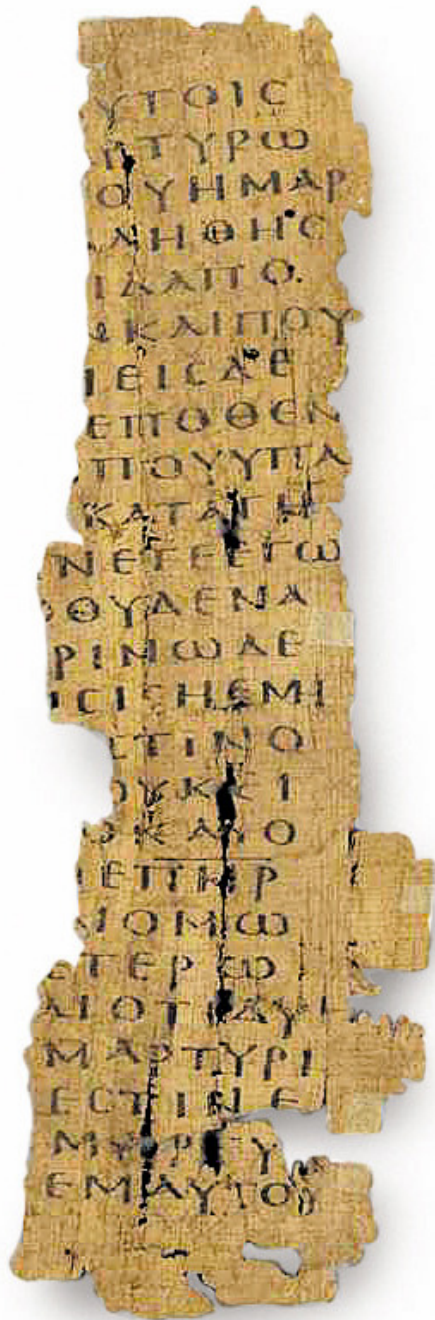 ΥΤΟΙϹ
ΤΥΡΩ
ΟΥΗΜΑΡ
ΛΗΘΗϹ
ΙΔΑΠΟ
ΚΑΙΠΟΥ
ΙΕΙϹΔΕ
ΕΠΟΘΕΝ
ΠΟΥΥΠΑ
ΚΑΤΑΤΗ
ΝΕΤΕΕΓΩ
ΟΥΔΕΝΑ
ΡΙΝΩΔΕ
ΙϹΙϹΗΕΜΙ
ϹΤΙΝΟ
ΟΥΚΕΙ
ΩΚΑΙΟ
ΕΠΗΡ
ΙΟΜΩ
ΕΤΕΡΩ
ΑΙΟΤΙΔΥ
ΜΑΡΤΥΡΙ
ΕϹΤΙΝΕ
ΜΑΡΤΥ
ΕΜΑΥΤΟΥ